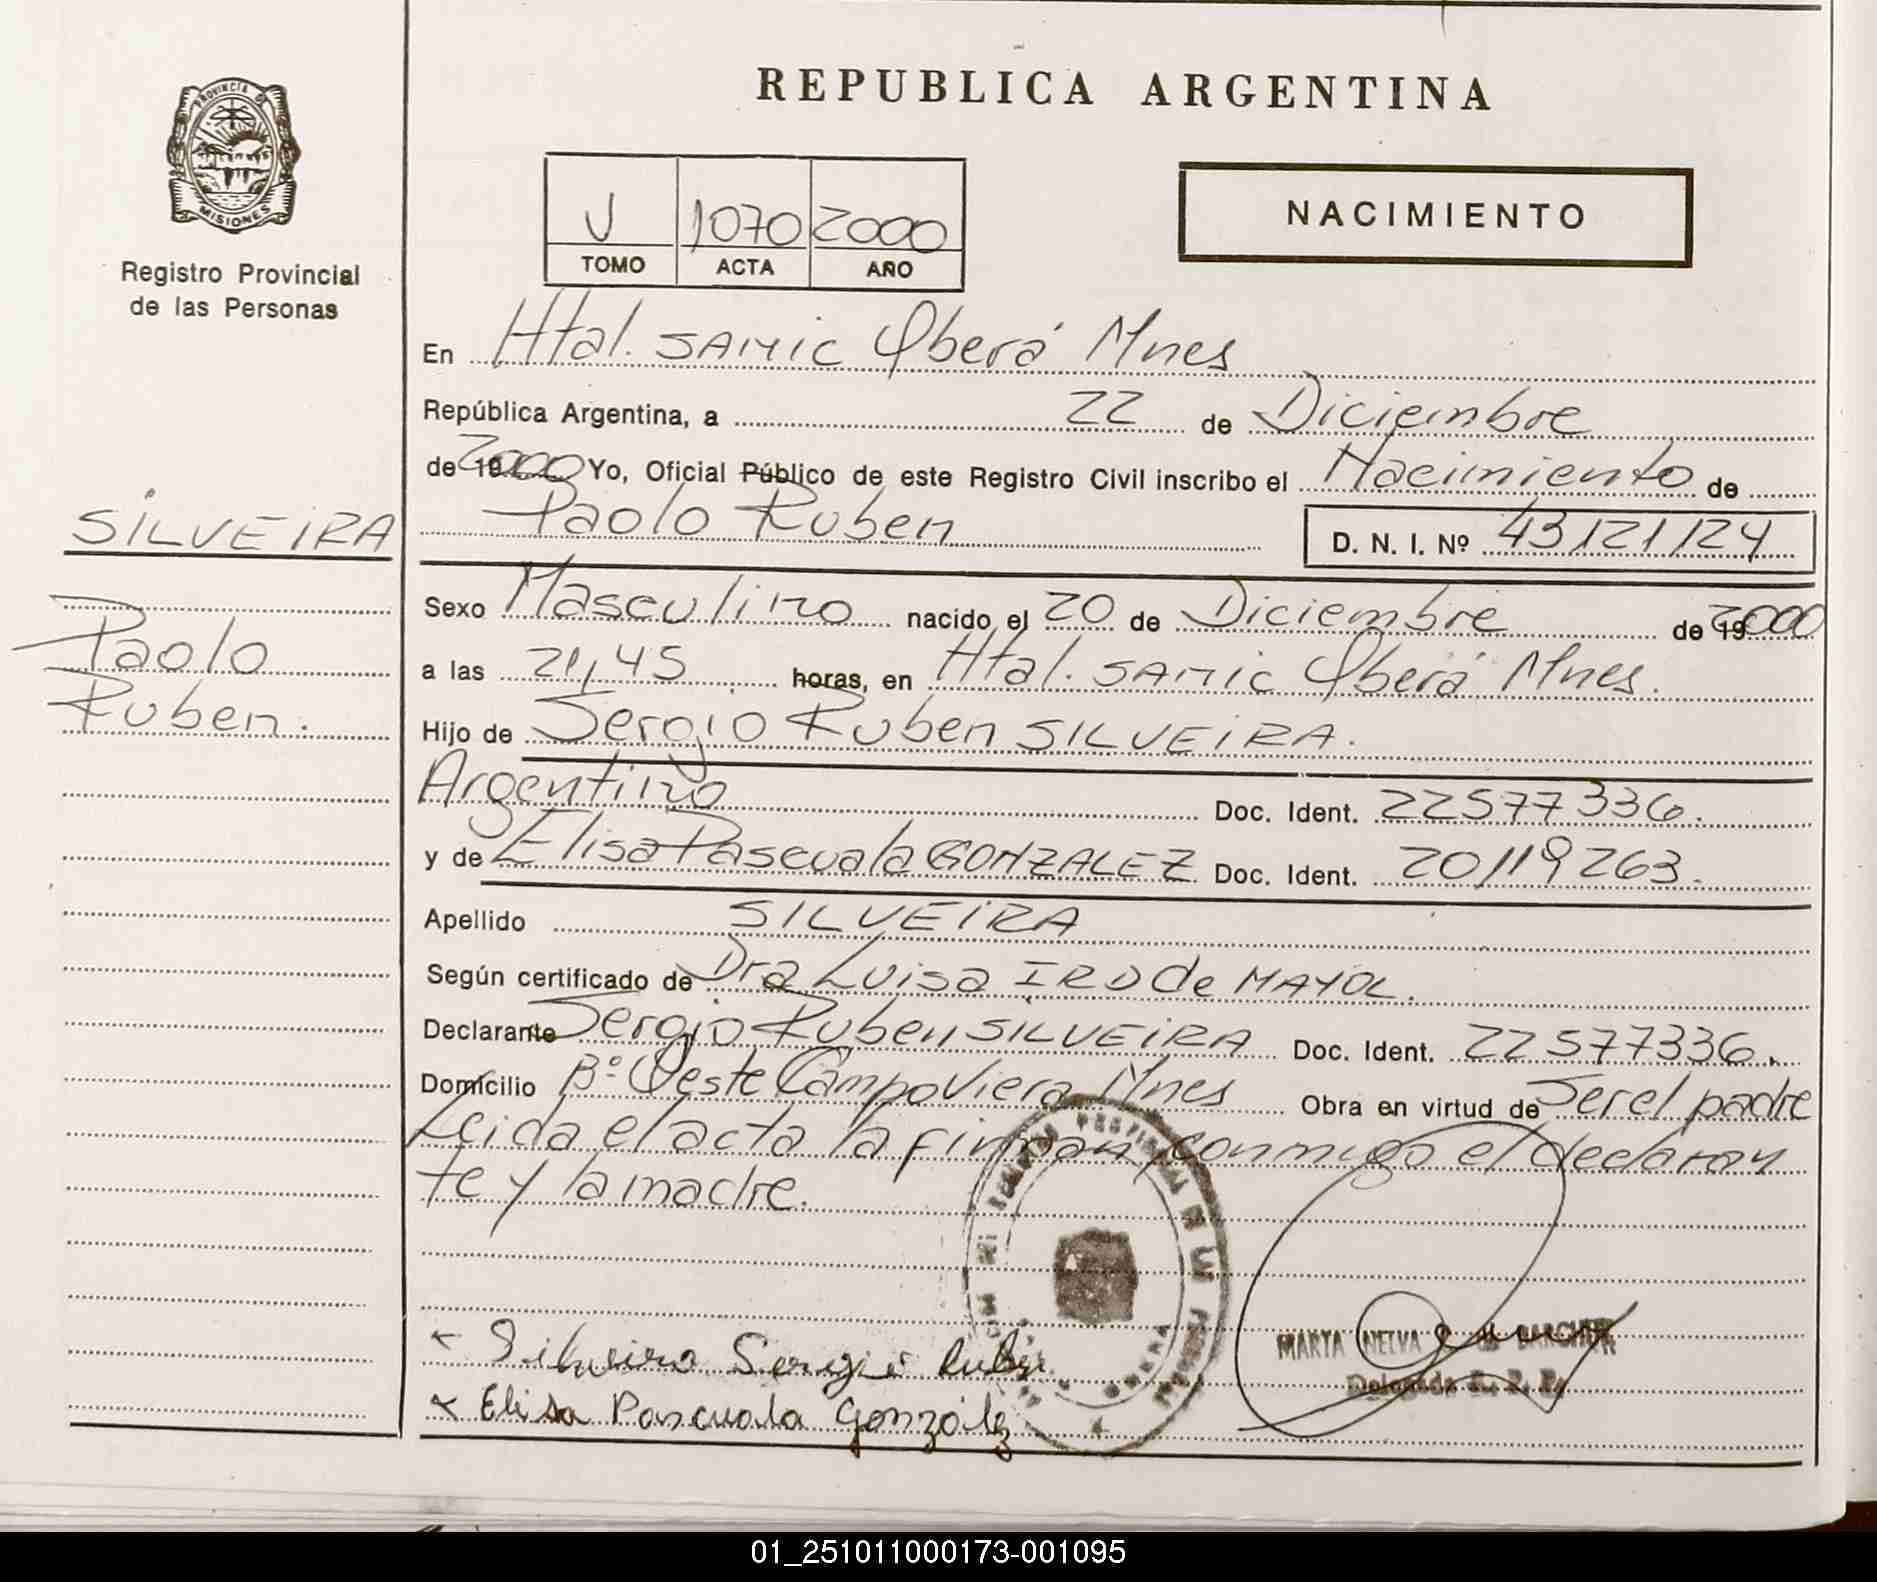 REPUBLICA ARGENTINA
PROVINCIA DE
MISIONES
Registro Provincial
de las Personas
V 1070 2000
TOMO ACTA AÑO
NACIMIENTO
En Htal. SAMIC Oberá Mnes
República Argentina, a 22 de Diciembre
de 19 2000 Yo, Oficial Público de este Registro Civil inscribo el Nacimiento de
Paolo Ruben D. N. I. Nº 43121124
SILVEIRA
Paolo
Ruben.
Sexo Masculino nacido el 20 de Diciembre de 19 2000
a las 21,45 horas, en Htal. SAMIC Oberá Mnes.
Hijo de Sergio Ruben SILVEIRA.
Argentino Doc. Ident. 22577336.
y de Elisa Pascuala GONZALEZ Doc. Ident. 20119263.
Apellido SILVEIRA
Según certificado de Dra Luisa IRO de MAYOL.
Declarante Sergio Ruben SILVEIRA Doc. Ident. 22577336.
Domicilio Bº Oeste Campo Viera Mnes Obra en virtud de Ser el padre
Leida el acta la firman conmigo el declaran
te y la madre.
Silveira Sergio Ruben
Elisa Pascuala González
MARTA NELVA
Delegada R. P. P.
OBERA
01_251011000173-001095